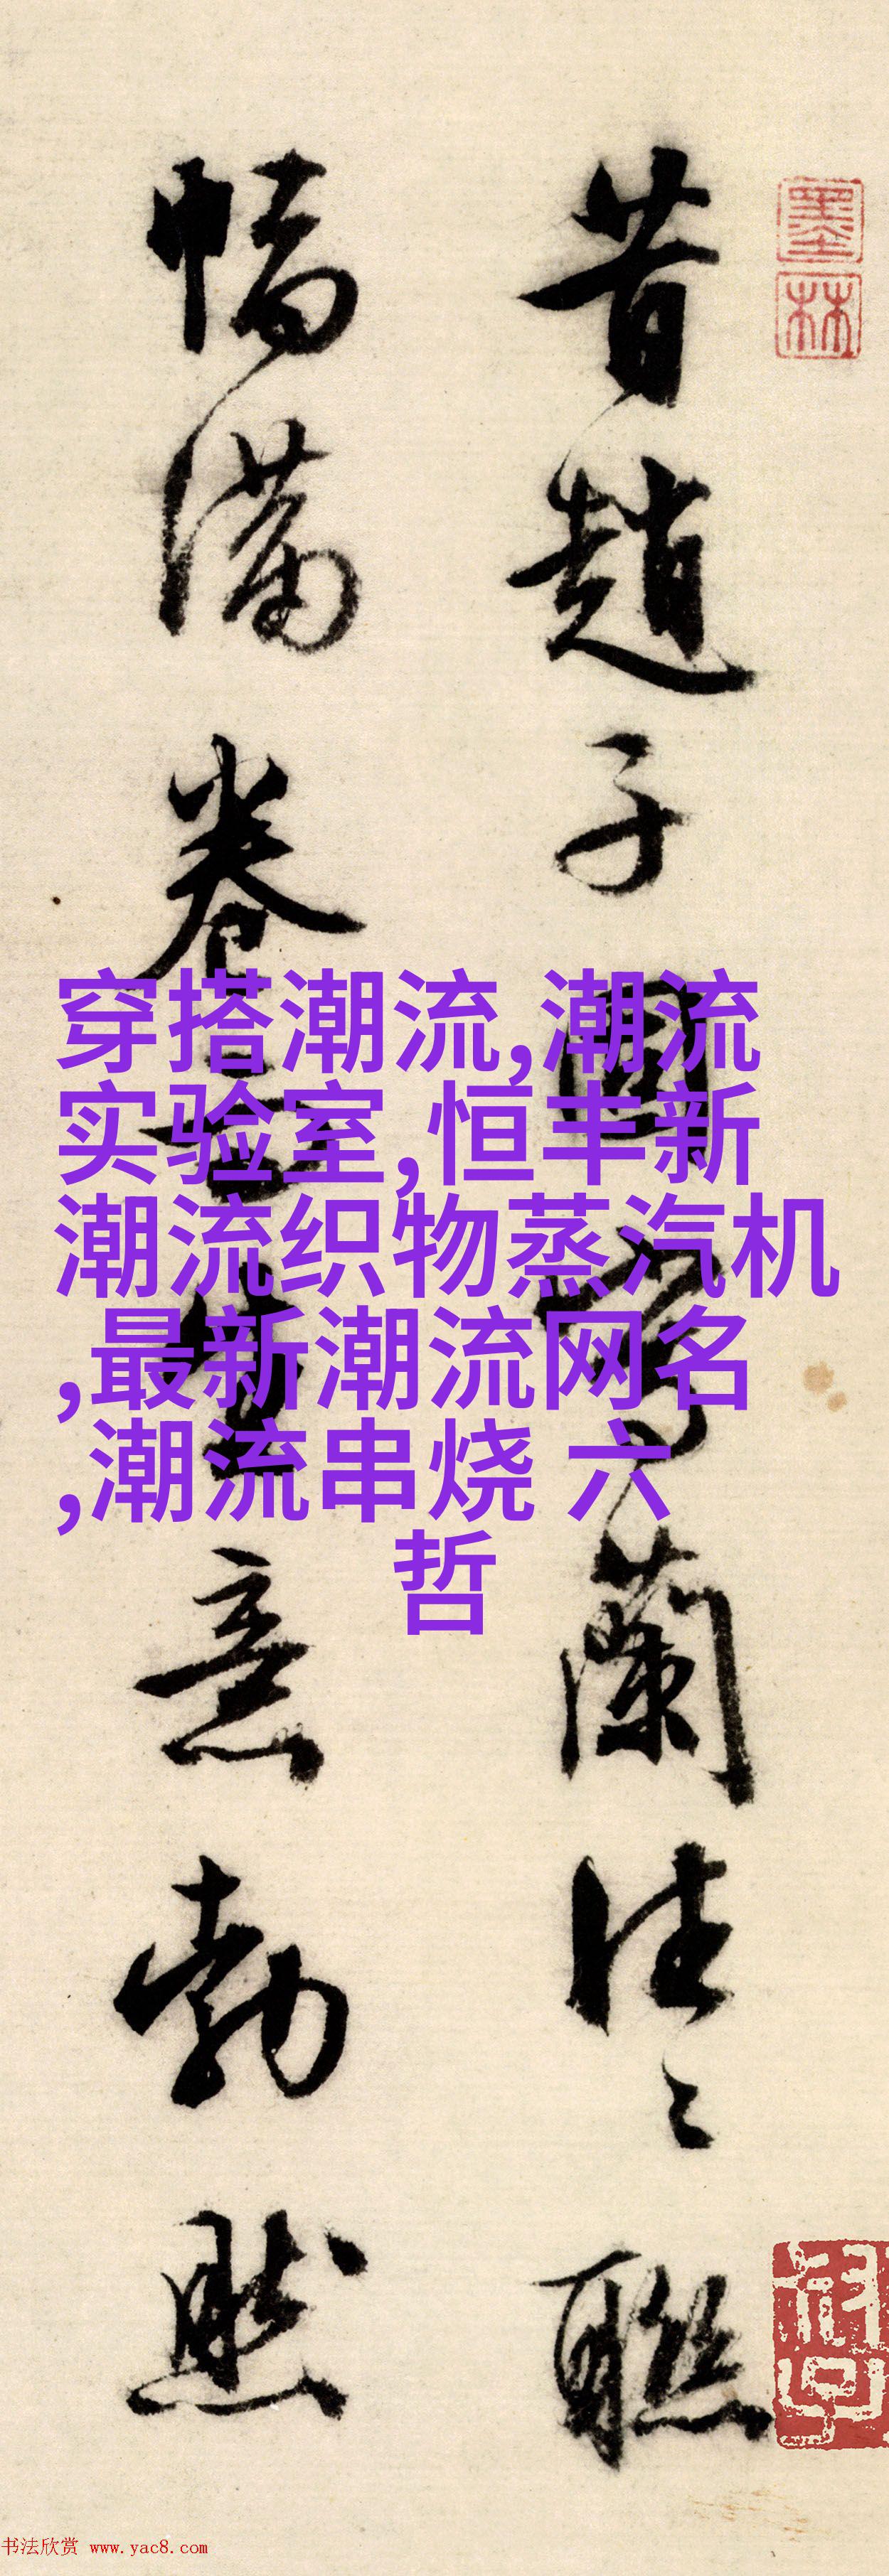 昔趙子固寫蘭往々聯
幅滿卷而生意勃然
墨林
穿搭潮流,潮流
实验室,恒丰新
潮流织物蒸汽机
,最新潮流网名
,潮流串烧 六
哲
书法欣赏 www.yac8.com